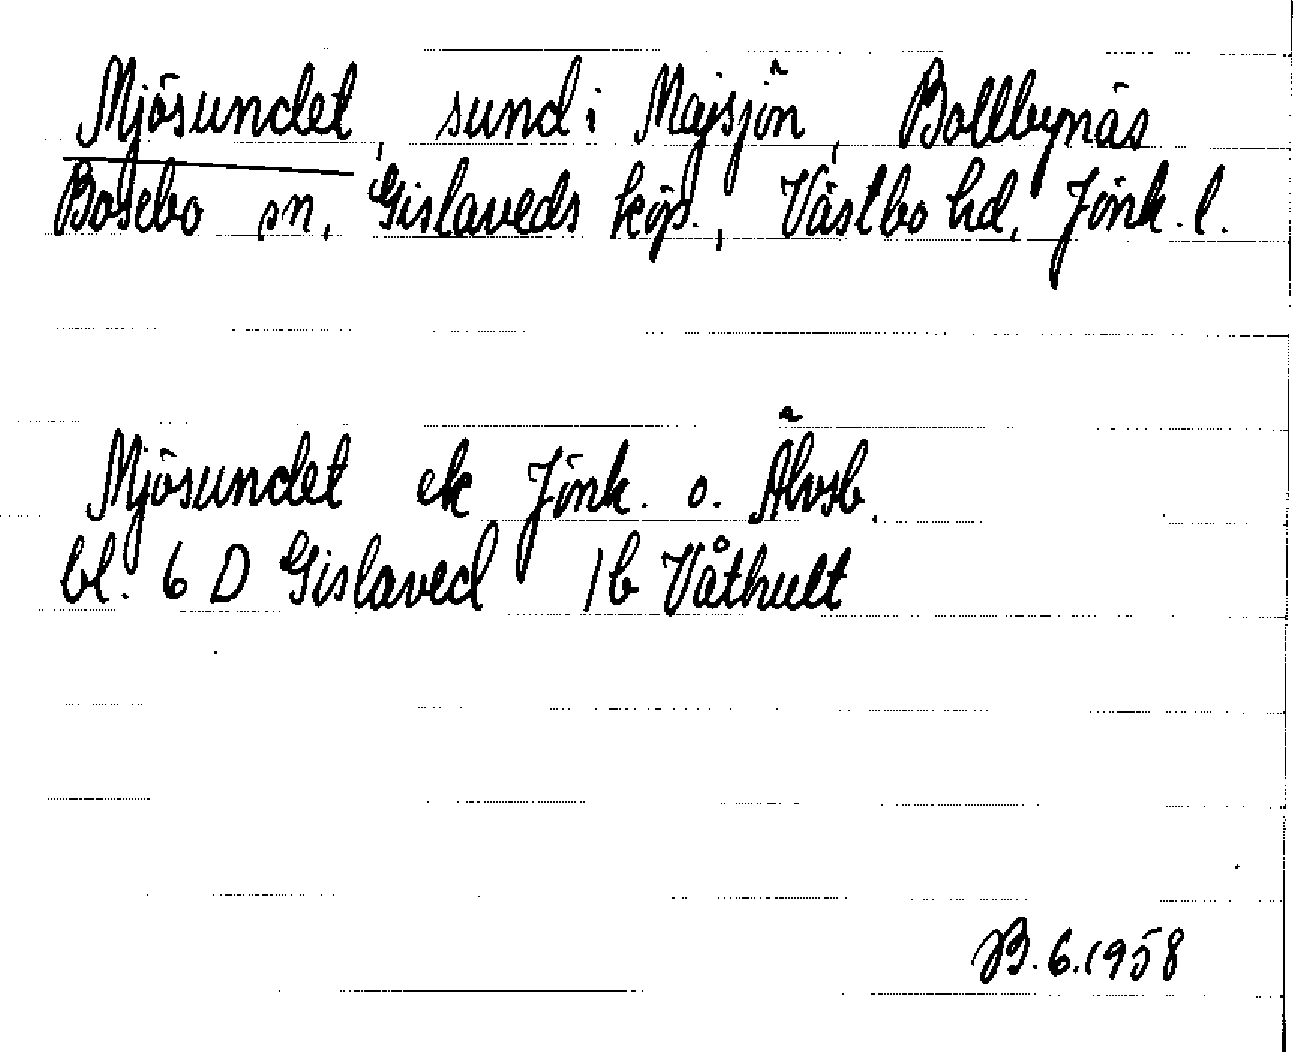 Mjösundet, sund i Majsjön, Bollbynäs
Bosebo sn, Gislaveds köp., Västbo hd, Jönk. l.
Mjösundet ek Jönk. o. Älvsb.
bl. 6 D Gislaved 1b Våthult
B. 6. 1958